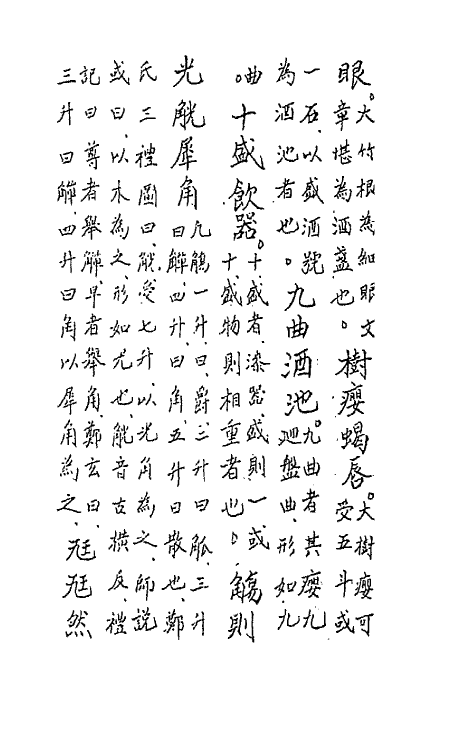 眼。大竹根為細眼文章堪為酒盞也。樹癭蝎唇。大樹癭可受五斗或
一石、以盛酒號為酒池者也。九曲酒池。九曲者、其癭九廻盤曲、形如九
曲。十盛飲器。十盛者、漆器、盛則一或十、盛物則相重者也。觴則
光觥犀角凡觴一升曰爵、二升曰觚、三升曰觶、四升曰角、五升曰散也、鄭
氏三禮圖曰、觥受七升、以光角為之、師說或曰、以木為之、形如尤也、觥音古橫反、禮
記曰尊者舉觶、卑者舉角、鄭玄曰、三升曰觶、四升曰角以犀角為之、尫尫然